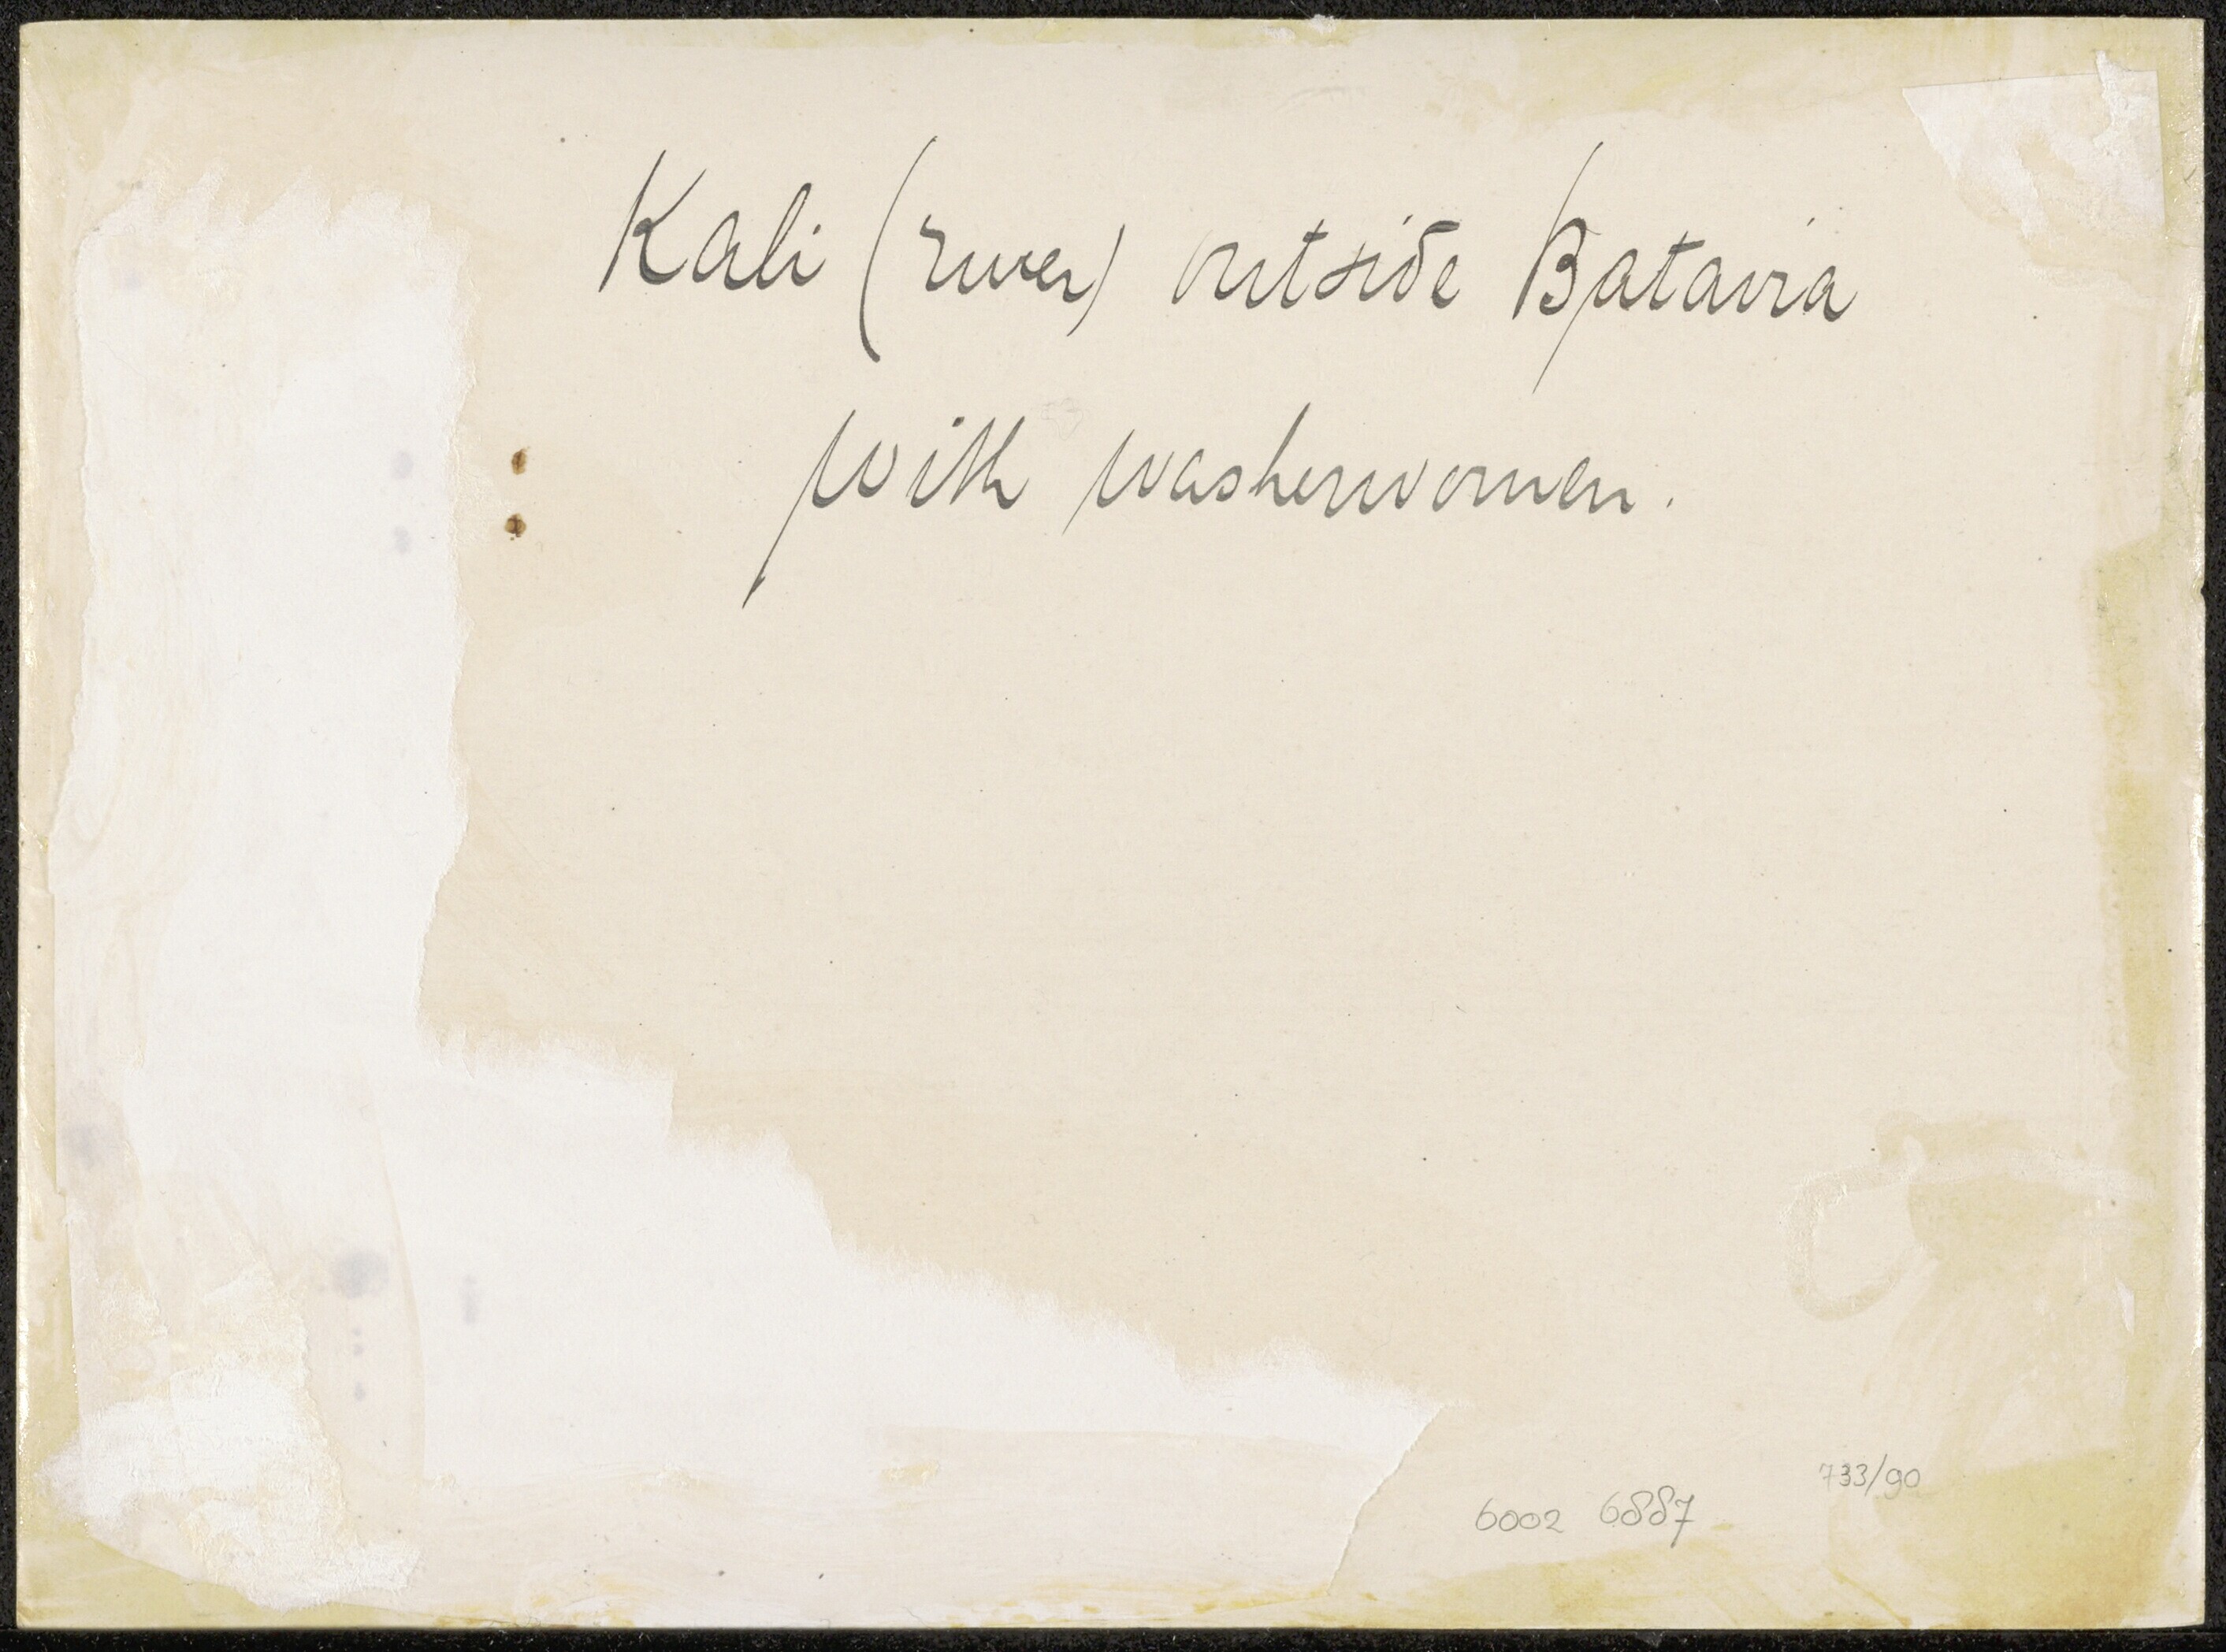 Kali (river) outside Batavia
with washerwomen.
733/90
6002 6887